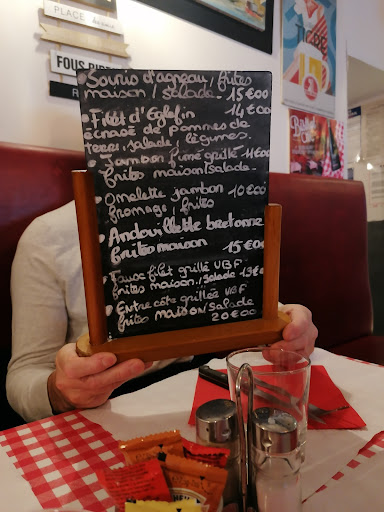 PLACE
FOUS
Souris d'agneau, frites
maison / salade. 15€00
• Filet d'Eglefin 14€00
écrasé de pommes de
terre, salade, légumes.
• Jambon fumé grillé 11€00
frites maison/salade.
• Omelette jambon 10€00
fromage, frites
• Andouillette bretonne
frites maison 15€00
• Faux filet grillé VBF
frites maison, salade 19€00
• Entrecôte grillée VBF
frites maison/salade
20€00